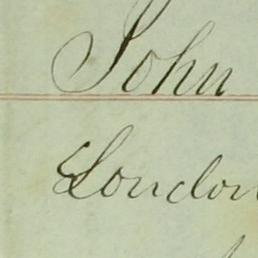 John
London